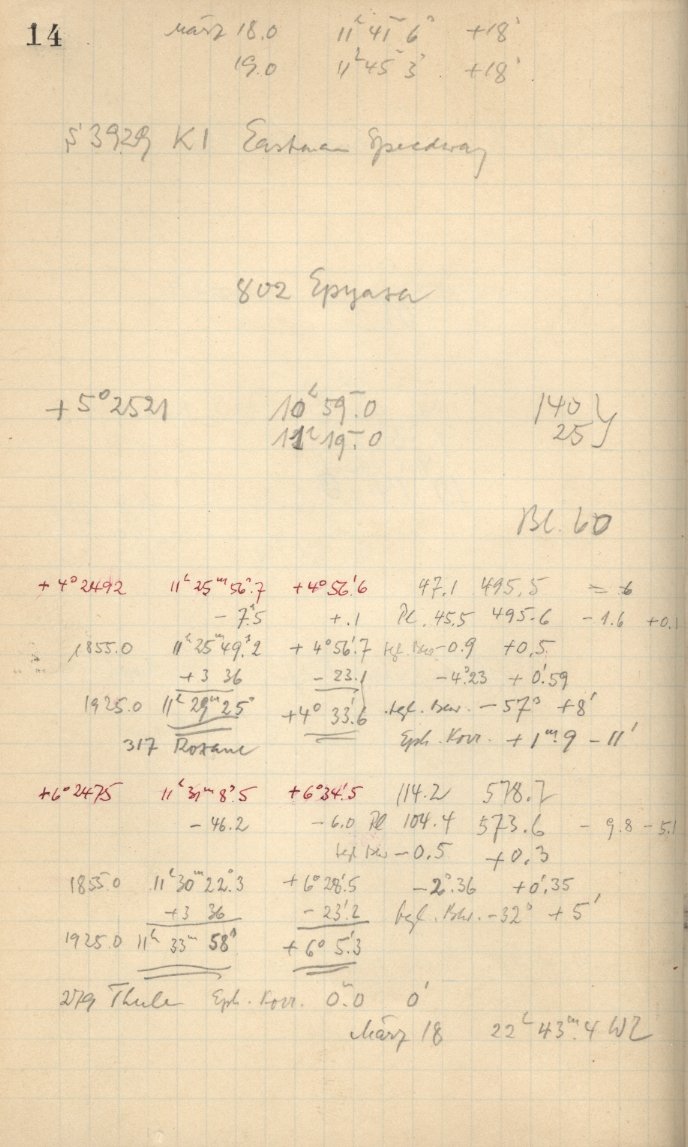 14
März 18.0 11ʰ 41ᵐ 6ˢ +18'
19.0 11ʰ 45ᵐ 3ˢ +18'
3929 K1 Eastman Speedway
802 Epyaxa
+5° 2521 10ʰ 59ᵐ.0 140 }
11ʰ 19ᵐ.0 25 }
Bl. 60
+4° 2492 11ʰ 25ᵐ 56ˢ.7 +4° 56'.6 47.1 495.5
- 7ˢ.5 +.1 Pl. 45.5 495.6 - 1.6 +0.1
1855.0 11ʰ 25ᵐ 49ˢ.2 +4° 56'.7 tgl. Bew. -0.9 +0.5
+3 36 - 23.1 -4ˢ.23 +0'.59
1925.0 11ʰ 29ᵐ 25ˢ +4° 33'.6 tgl. Bew. -57ˢ +8'
317 Roxane Eph. Korr. +1ᵐ.9 - 11'
+6° 2475 11ʰ 31ᵐ 8ˢ.5 +6° 34'.5 114.2 578.7
- 46.2 - 6.0 Pl 104.4 573.6 - 9.8 - 5.1
tgl. Bew - 0.5 +0.3
1855.0 11ʰ 30ᵐ 22ˢ.3 +6° 28'.5 -2ˢ.36 +0'.35
+3 36 - 23'.2 tgl. Bew. -32ˢ +5'
1925.0 11ʰ 33ᵐ 58ˢ +6° 5'.3
279 Thule Eph. Korr. 0ᵐ.0 0'
März 18 22ʰ 43ᵐ.4 WZ